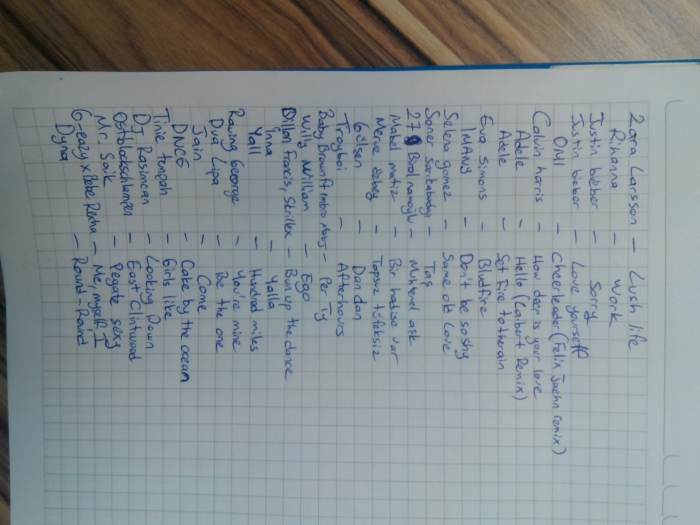 Zara Larsson - Lush life
Rihanna - Work
Justin bieber - Sorry
Justin bieber - Love yourself
OMI - Cheerleader (Felix Jaehn remix)
Calvin harris - How deep is your love
Adele - Hello (Remix)
Adele - Set Fire to the rain
Eva simons - Bludfire
IMANY - Don't be so shy
Selena gomez - Same old Love
Soner Sarıkabadayı - Taş
27 - Muhtemel aşk
Mabel matiz - Bir hadise var
Merve özbey - Topsuz tüfeksiz
Gülşen - Dan dan
Troyboi - Afterhours
Baby Brown ft - Per Ty
Willy William - Ego
Dillon Francis, Skrillex - Bun up the dance
Inna - Yalla
Yall - Hundred miles
Raving George - You're mine
Dua Lipa - Be the one
Jain - Come
DNCE - Cake by the ocean
Tinie tempah - Girls like
DJ Rasimcan - Looking Down
Ostblockschlampen - East Clintwood
Mr. Saik - Pegate sexy
G-eazy x Bebe Rexha - Me, myself I
Dyna - Round-Round